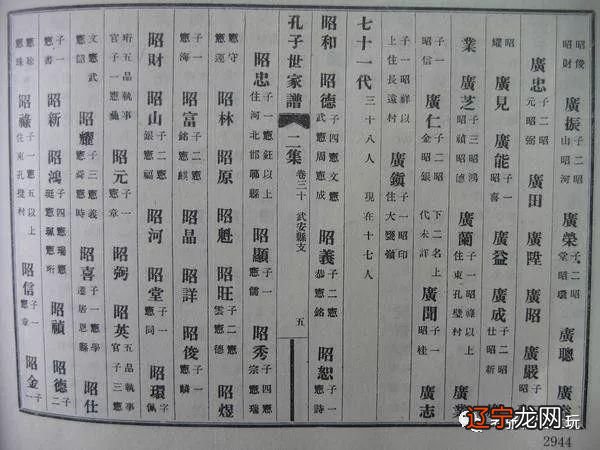 昭俊昭財 廣振 子二昭山昭河 廣榮 子二昭堂昭環 廣聰
廣忠 子二昭元昭弼 廣田 廣陞 廣昭 廣嚴
耀 廣見 廣能 子一昭喜 廣益 廣成 子二昭仕昭新
業 廣芝 子三昭鴻昭禎昭德 廣蘭 子一昭祿以上住東孔壁村 廣業
子一昭信 廣仁 子二昭金昭銀 下二名上代未詳 廣聞 子一昭桂 廣志
子一昭祥以上住長遠村 廣鎮 子一昭印住大嶺
七十一代 三十八人 現在十七人
昭和 昭德 子四憲文憲武憲周憲成 昭義 子二憲恭憲銘 昭恕 子一憲詩
孔子世家譜 二集 卷三十 武安縣支 五
昭忠 子一憲鈺以上住河北邯鄲縣 昭顯 子一憲儒 昭秀 子二憲宗憲瑞
憲守憲遠 昭林 昭原 昭魁 昭旺 子二憲雲憲德 昭煜
子一憲海 昭富 子二憲銘憲麒 昭晶 昭詳 昭俊 子一憲麟
昭財 昭山 子二憲銀憲福 昭河 昭堂 子一憲同 昭環 字佩
珩五品執事官子一憲彝 昭元 子一憲章 昭弼 昭英 五品執事官子三憲
文憲武憲韶 昭耀 子三憲義憲舜憲時 昭喜 子一憲學遷居恩縣 昭仕
子一憲書 昭新 昭鴻 子四憲瑞憲珽憲珮憲珩 昭禎 昭德 子二
憲珍憲珠 昭祿 子一憲五以上住東孔壁村 昭信 子一憲章 昭金 子一
辽宁龙网
2944